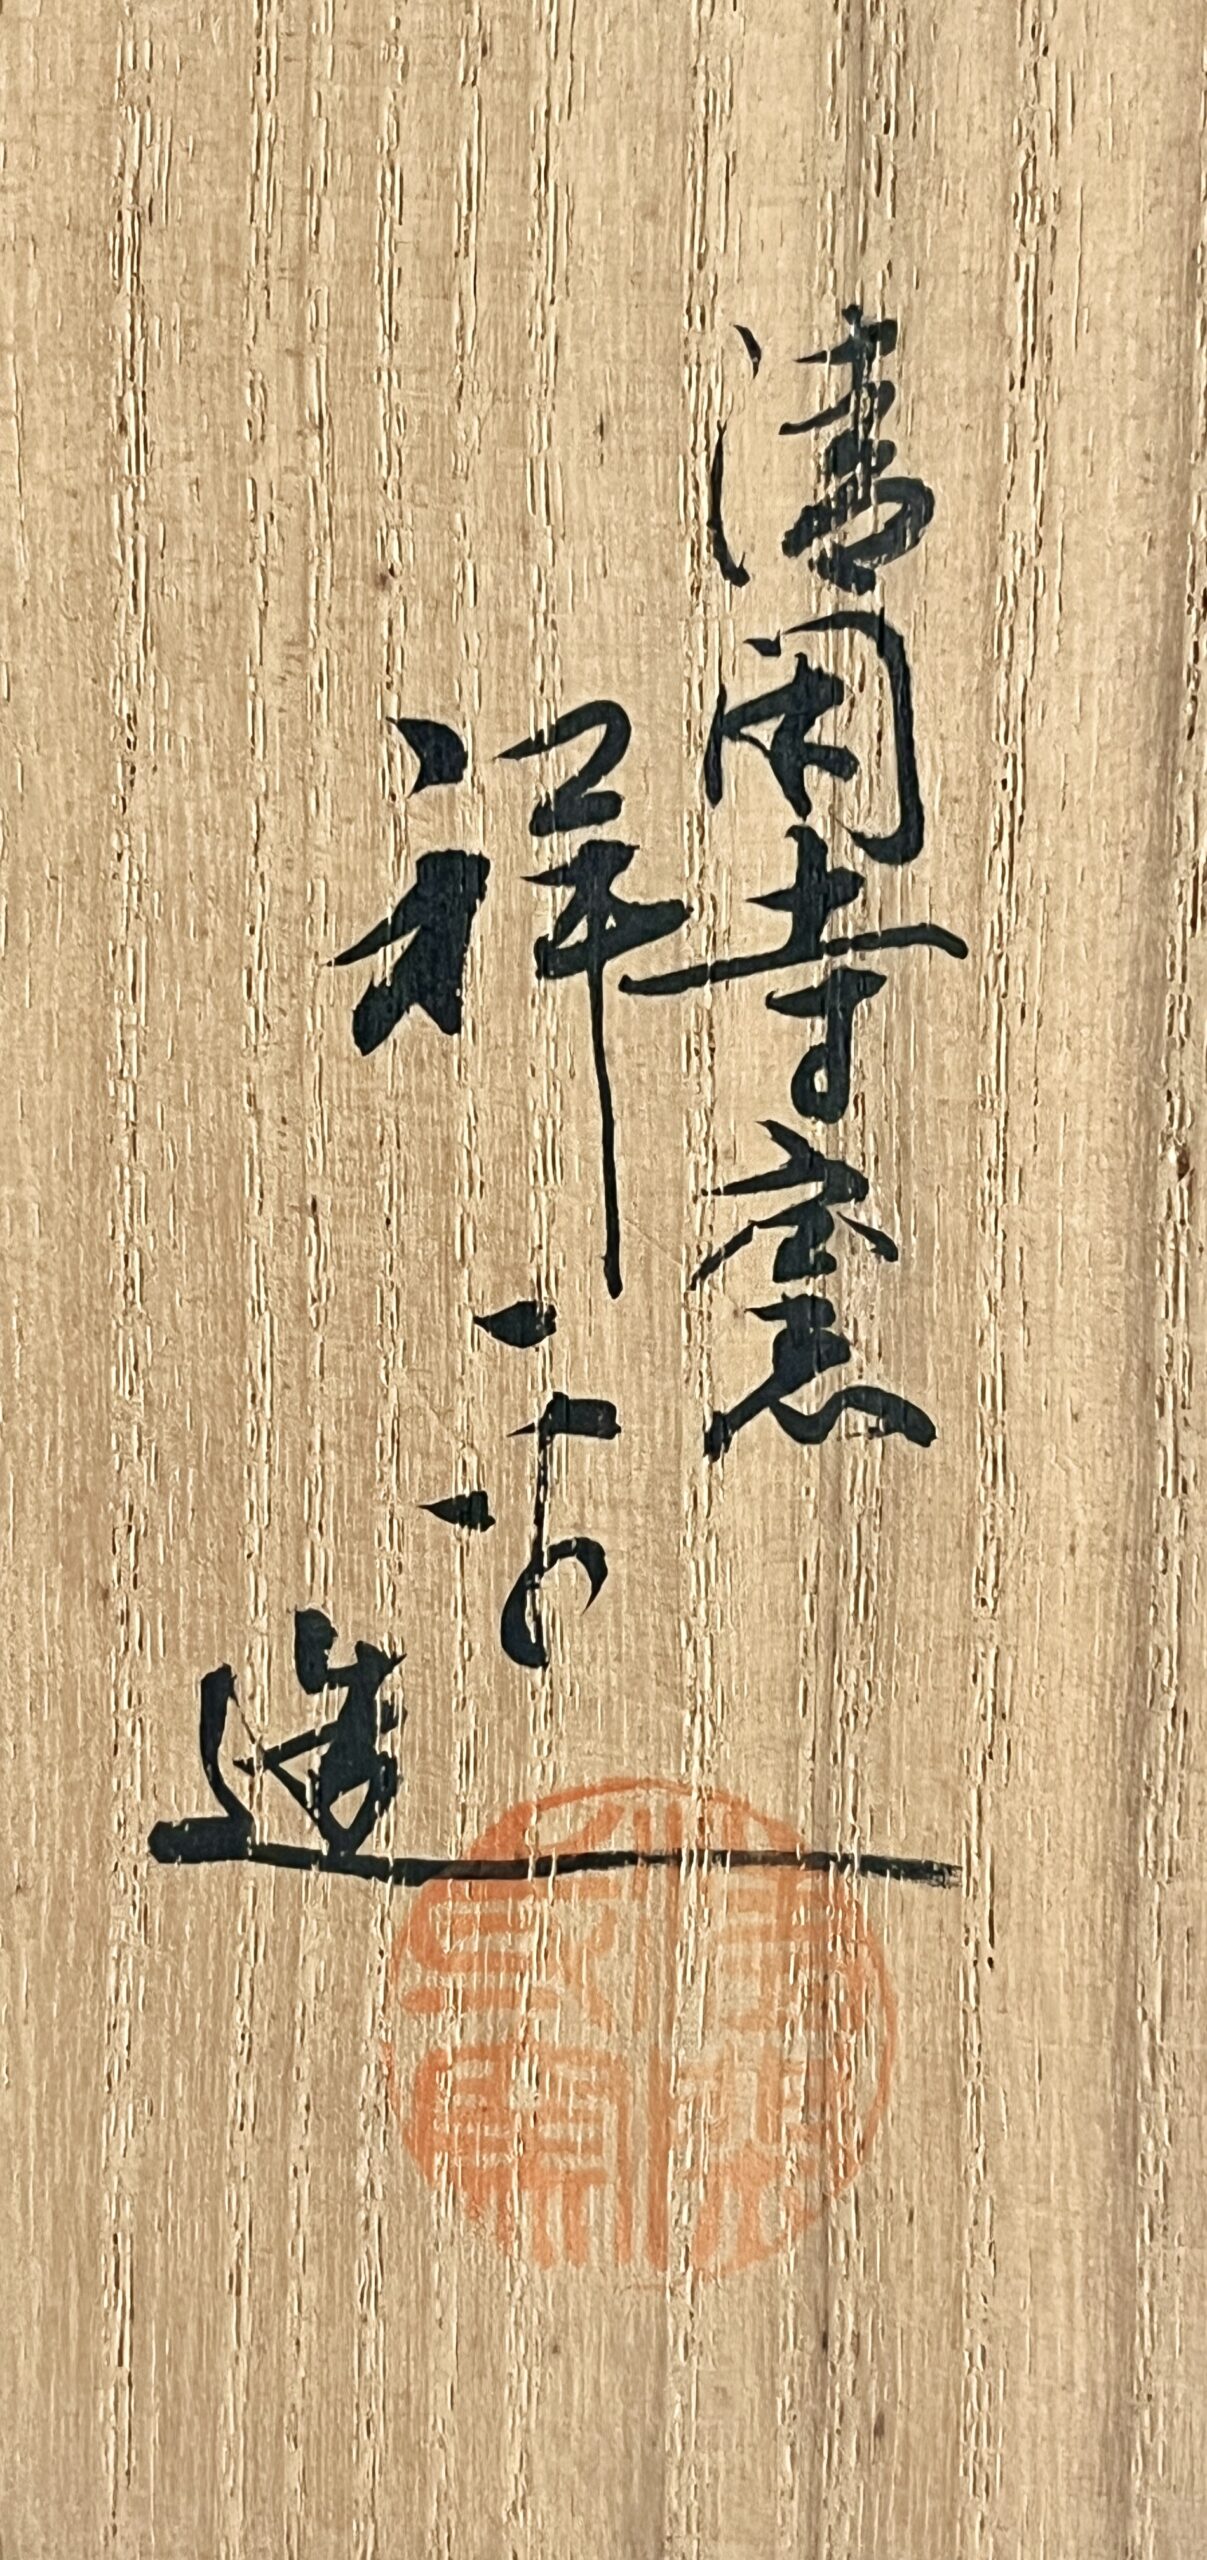 清閑寺窯
祥平
造